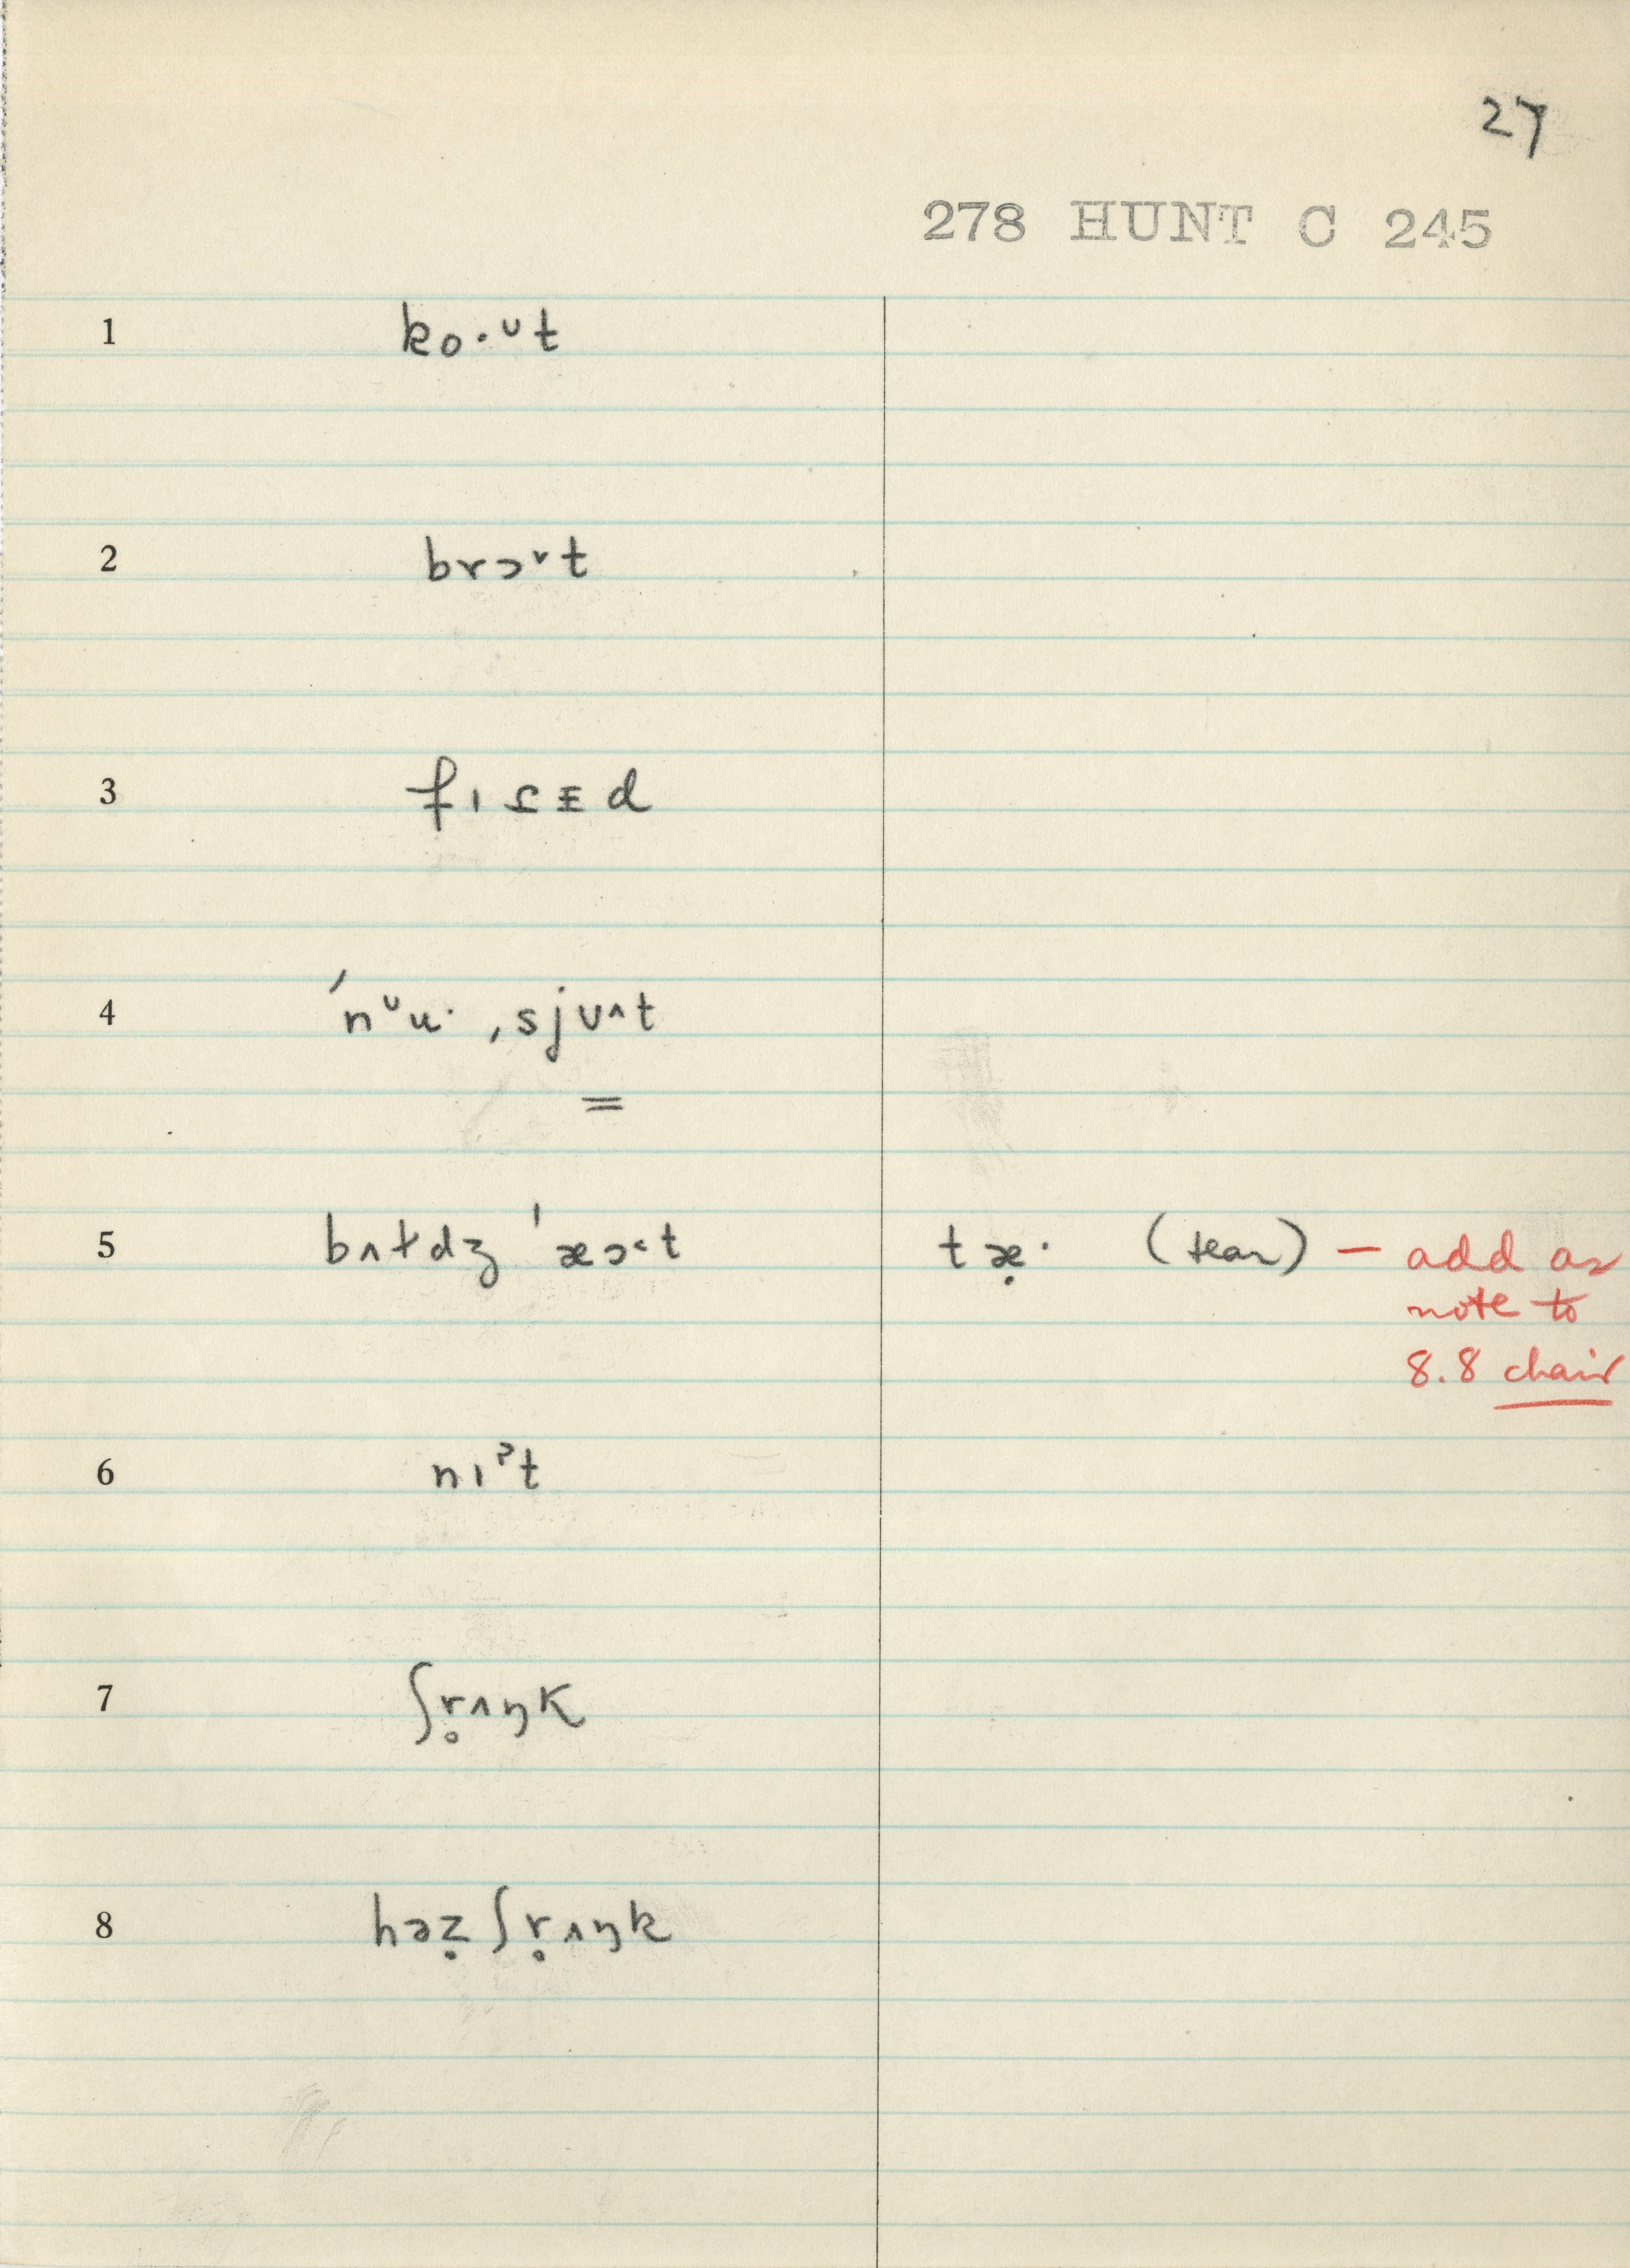 27
278 HUNT C 245
1 ko·ᵘt
2 brɔ˅t
3 fɪᶊᵻd
4 ˈnᵘu· ˌsjʊ^t
=
5 bʌɫdʒ ˈæɔ˂t tæ̣· (tear) — add as
note to
8.8 chair
6 nɪˀt
7 ʃr̥ʌŋk
8 həẓ ʃr̥ʌŋk